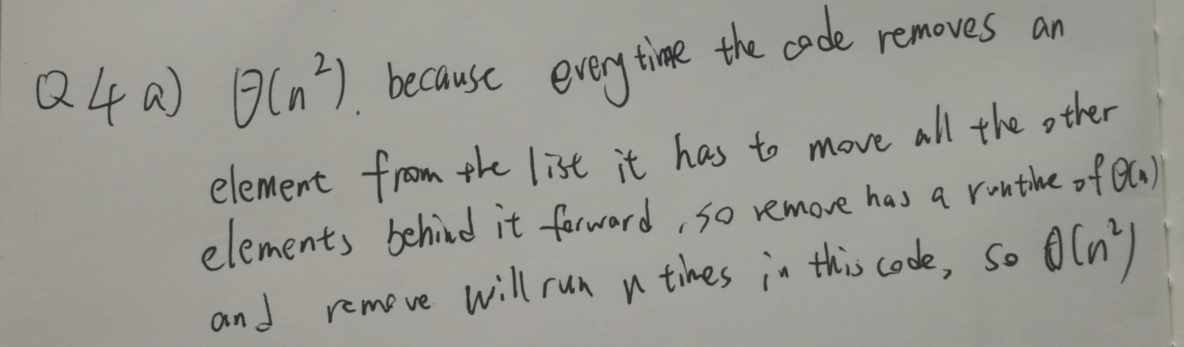 Q4 a) θ(n²). because every time the code removes an
element from the list it has to move all the other
elements behind it forward, so remove has a runtime of θ(n)
and remove will run n times in this code, so θ(n²)